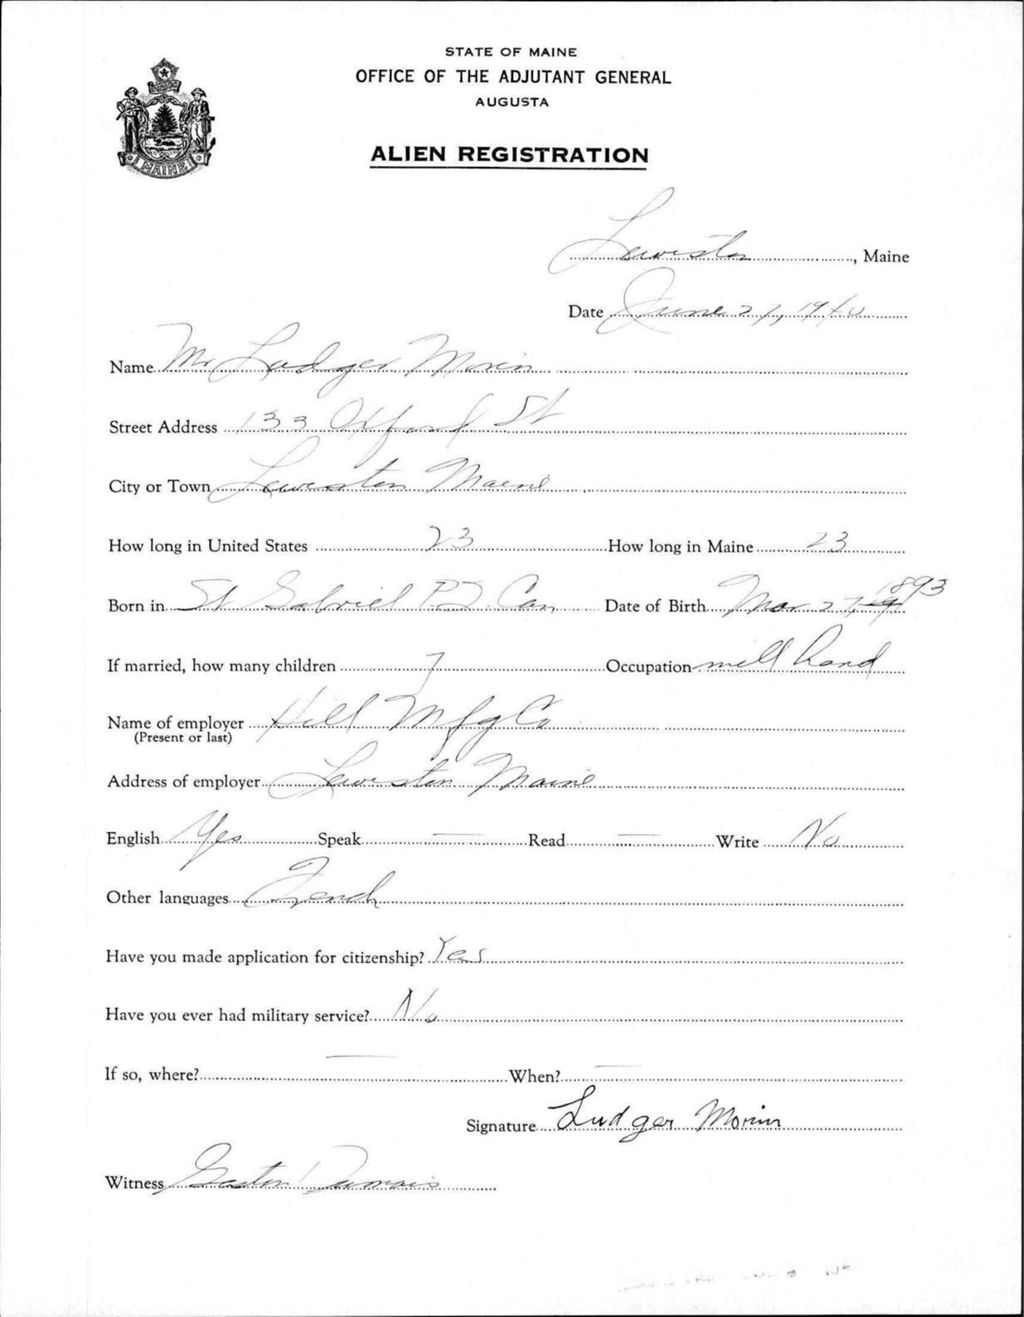 STATE OF MAINE
OFFICE OF THE ADJUTANT GENERAL
AUGUSTA
ALIEN REGISTRATION
MAINE
Lewiston, Maine
Date June 27, 1940
Name Mr Ludger Morin
Street Address 133 Oxford St
City or Town Lewiston Maine
How long in United States 23 How long in Maine 23
Born in St Gabriel P.Q. Can Date of Birth Mar 27, 1893
If married, how many children 7 Occupation mill hand
Name of employer Hill Mfg Co
(Present or last)
Address of employer Lewiston Maine
English Yes Speak — Read — Write No
Other languages French
Have you made application for citizenship? Yes
Have you ever had military service? No
If so, where? — When? —
Signature Ludger Morin
Witness Gaston Dumais